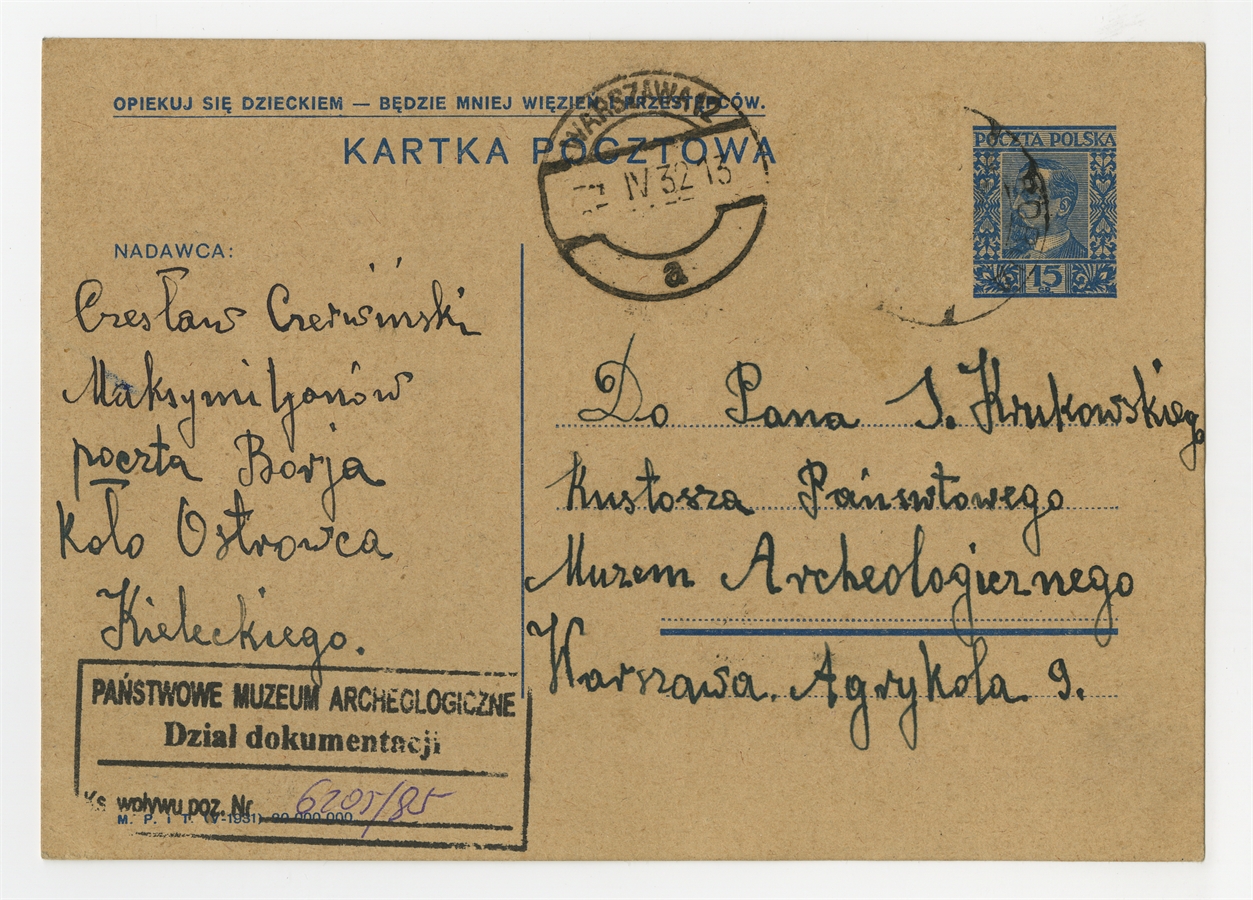 OPIEKUJ SIĘ DZIECKIEM — BĘDZIE MNIEJ WIĘZIEŃ I PRZESTĘPCÓW.
KARTKA POCZTOWA
WARSZAWA 12
IV 32 13
a
POCZTA POLSKA
15
GR
NADAWCA:
Czesław Czerwiński
Maksymiljanów
poczta Borja
koło Ostrowca
Kieleckiego.
Do Pana J. Krukowskiego
Kustosza Państwowego
Muzem Archeologicznego
Warszawa. Agrykola 9.
PAŃSTWOWE MUZEUM ARCHEOLOGICZNE
Dział dokumentacji
Ks. wpływu poz. Nr 6205/85
M. P. i T. (V-1931) 20.000.000